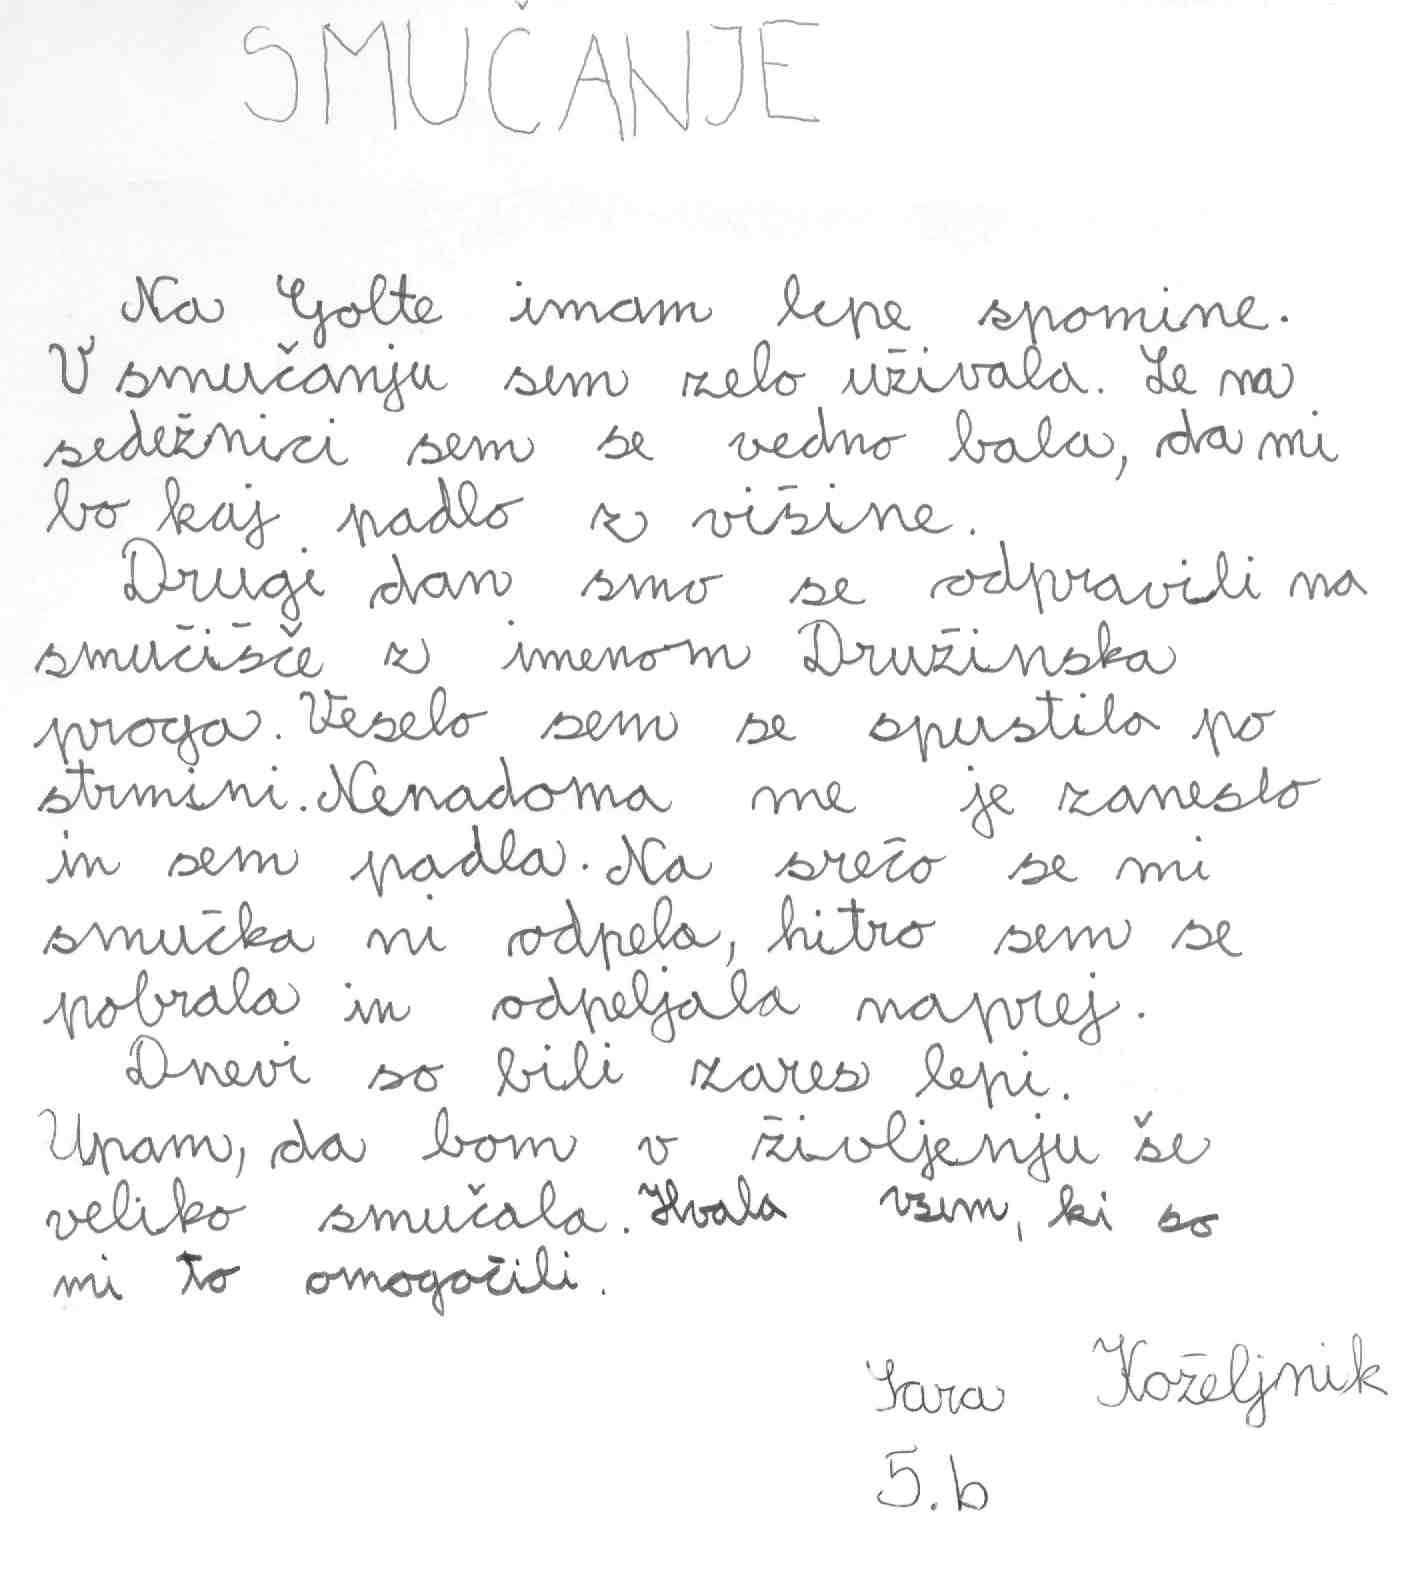 SMUČANJE
Na Golte imam lepe spomine.
V smučanju sem zelo uživala. Le na
sedežnici sem se vedno bala, da mi
bo kaj padlo z višine.
Drugi dan smo se odpravili na
smučišče z imenom Družinska
proga. Veselo sem se spustila po
strmini. Nenadoma me je zaneslo
in sem padla. Na srečo se mi
smučka ni odpela, hitro sem se
pobrala in odpeljala naprej.
Dnevi so bili zares lepi.
Upam, da bom v življenju še
veliko smučala. Hvala vsem, ki so
mi to omogočili.
Sara Koželjnik
5.b